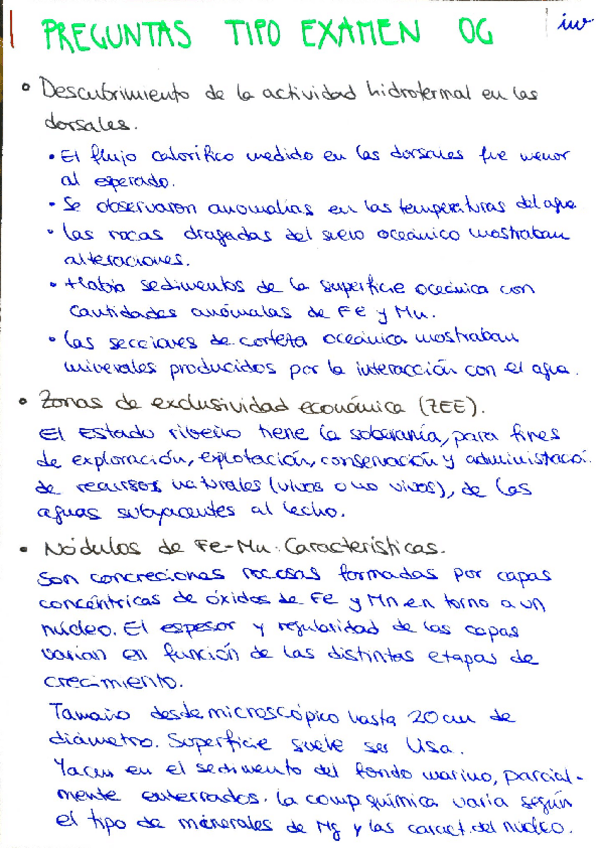 PREGUNTAS TIPO EXAMEN OG
• Descubrimiento de la actividad hidrotermal en las
dorsales.
• El flujo calorífico medido en las dorsales fue menor
al esperado.
• Se observaron anomalías en las temperaturas del agua
• Las rocas dragadas del suelo oceánico mostraban
alteraciones.
• Había sedimentos de la superficie oceánica con
cantidades anómalas de Fe y Mn.
• Las secciones de corteza oceánica mostraban
minerales producidos por la interacción con el agua.
• Zonas de exclusividad económica (ZEE).
El Estado ribeño tiene la soberanía, para fines
de exploración, explotación, conservación y administració.
de recursos naturales (vivos o no vivos), de las
aguas subyacentes al lecho.
• Nódulos de Fe-Mn: Características.
Son concreciones rocosas formadas por capas
concéntricas de óxidos de Fe y Mn en torno a un
núcleo. El espesor y regularidad de las capas
varían en función de las distintas etapas de
crecimiento.
Tamaño desde microscópico hasta 20 cm de
diámetro. Superficie suele ser lisa.
Yacen en el sedimento del fondo marino, parcial-
mente enterrados. La comp química varía según
el tipo de minerales de Mg y las caract. del núcleo.